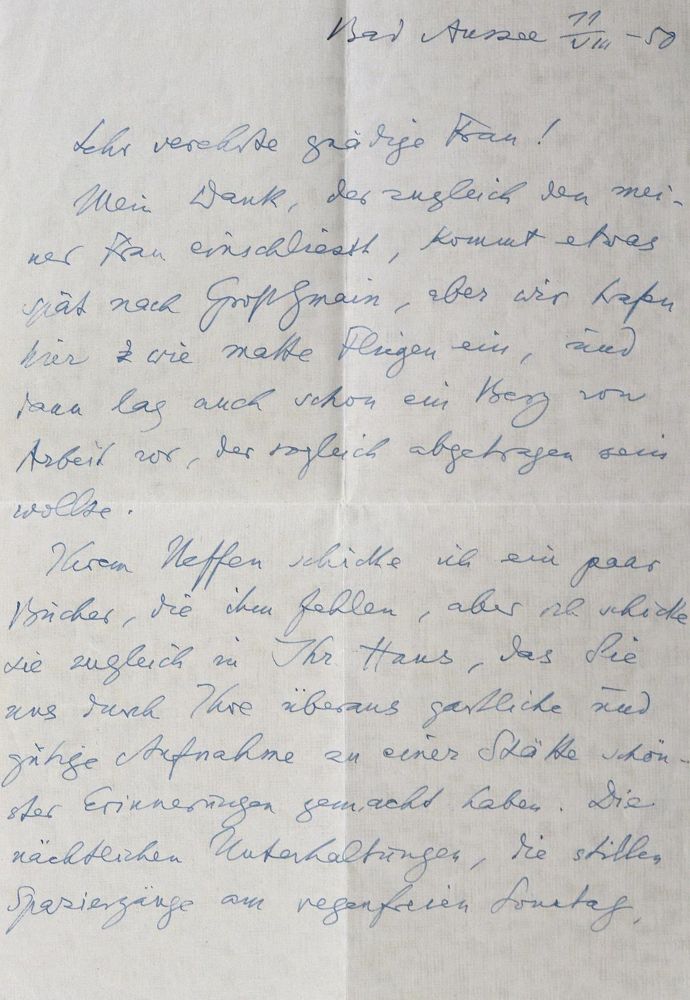 Bad Aussee 11/VIII - 50
Sehr verehrte gnädige Frau!
Mein Dank, der zugleich den mei-
ner Frau einschliesst, kommt etwas
spät nach Großgmain, aber wir trafen
hier wie matte Fliegen ein, und
dann lag auch schon ein Berg von
Arbeit vor, der sogleich abgetragen sein
wollte.
Ihrem Neffen schicke ich ein paar
Bücher, die ihm fehlen, aber ich schicke
sie zugleich in Ihr Haus, das Sie
uns durch Ihre überaus gastliche und
gütige Aufnahme zu einer Stätte schön-
ster Erinnerungen gemacht haben. Die
nächtlichen Unterhaltungen, die stillen
Spaziergänge am regenfreien Sonntag,